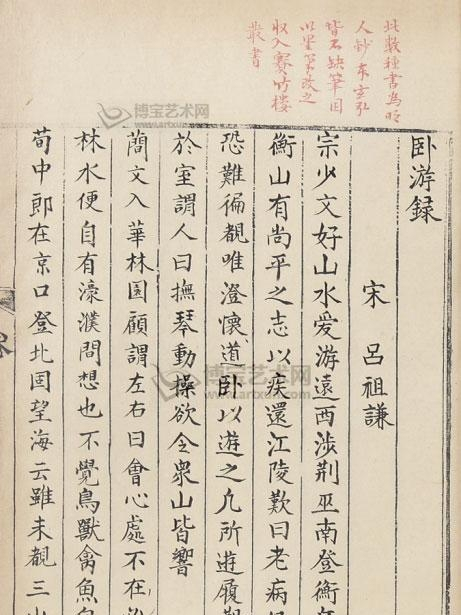 此數種書為明
人鈔本玄弘
皆不缺筆因
以墨筆改之
收入賽竹樓
叢書
卧游録
宋 呂祖謙
宗少文好山水愛游遠西涉荆巫南登衡
衡山有尚平之志以疾還江陵歎曰老病
恐難徧覩唯澄懷道卧以遊之凡所遊履
於室謂人曰撫琴動操欲令衆山皆響
蕳文入華林園顧謂左右曰會心處不在
林水便自有濠濮間想也不覺鳥獸禽魚自
荀中郎在京口登北固望海云雖未覩三山
博宝艺术网
www.artxun.com
博宝艺术网
www.artxun.com